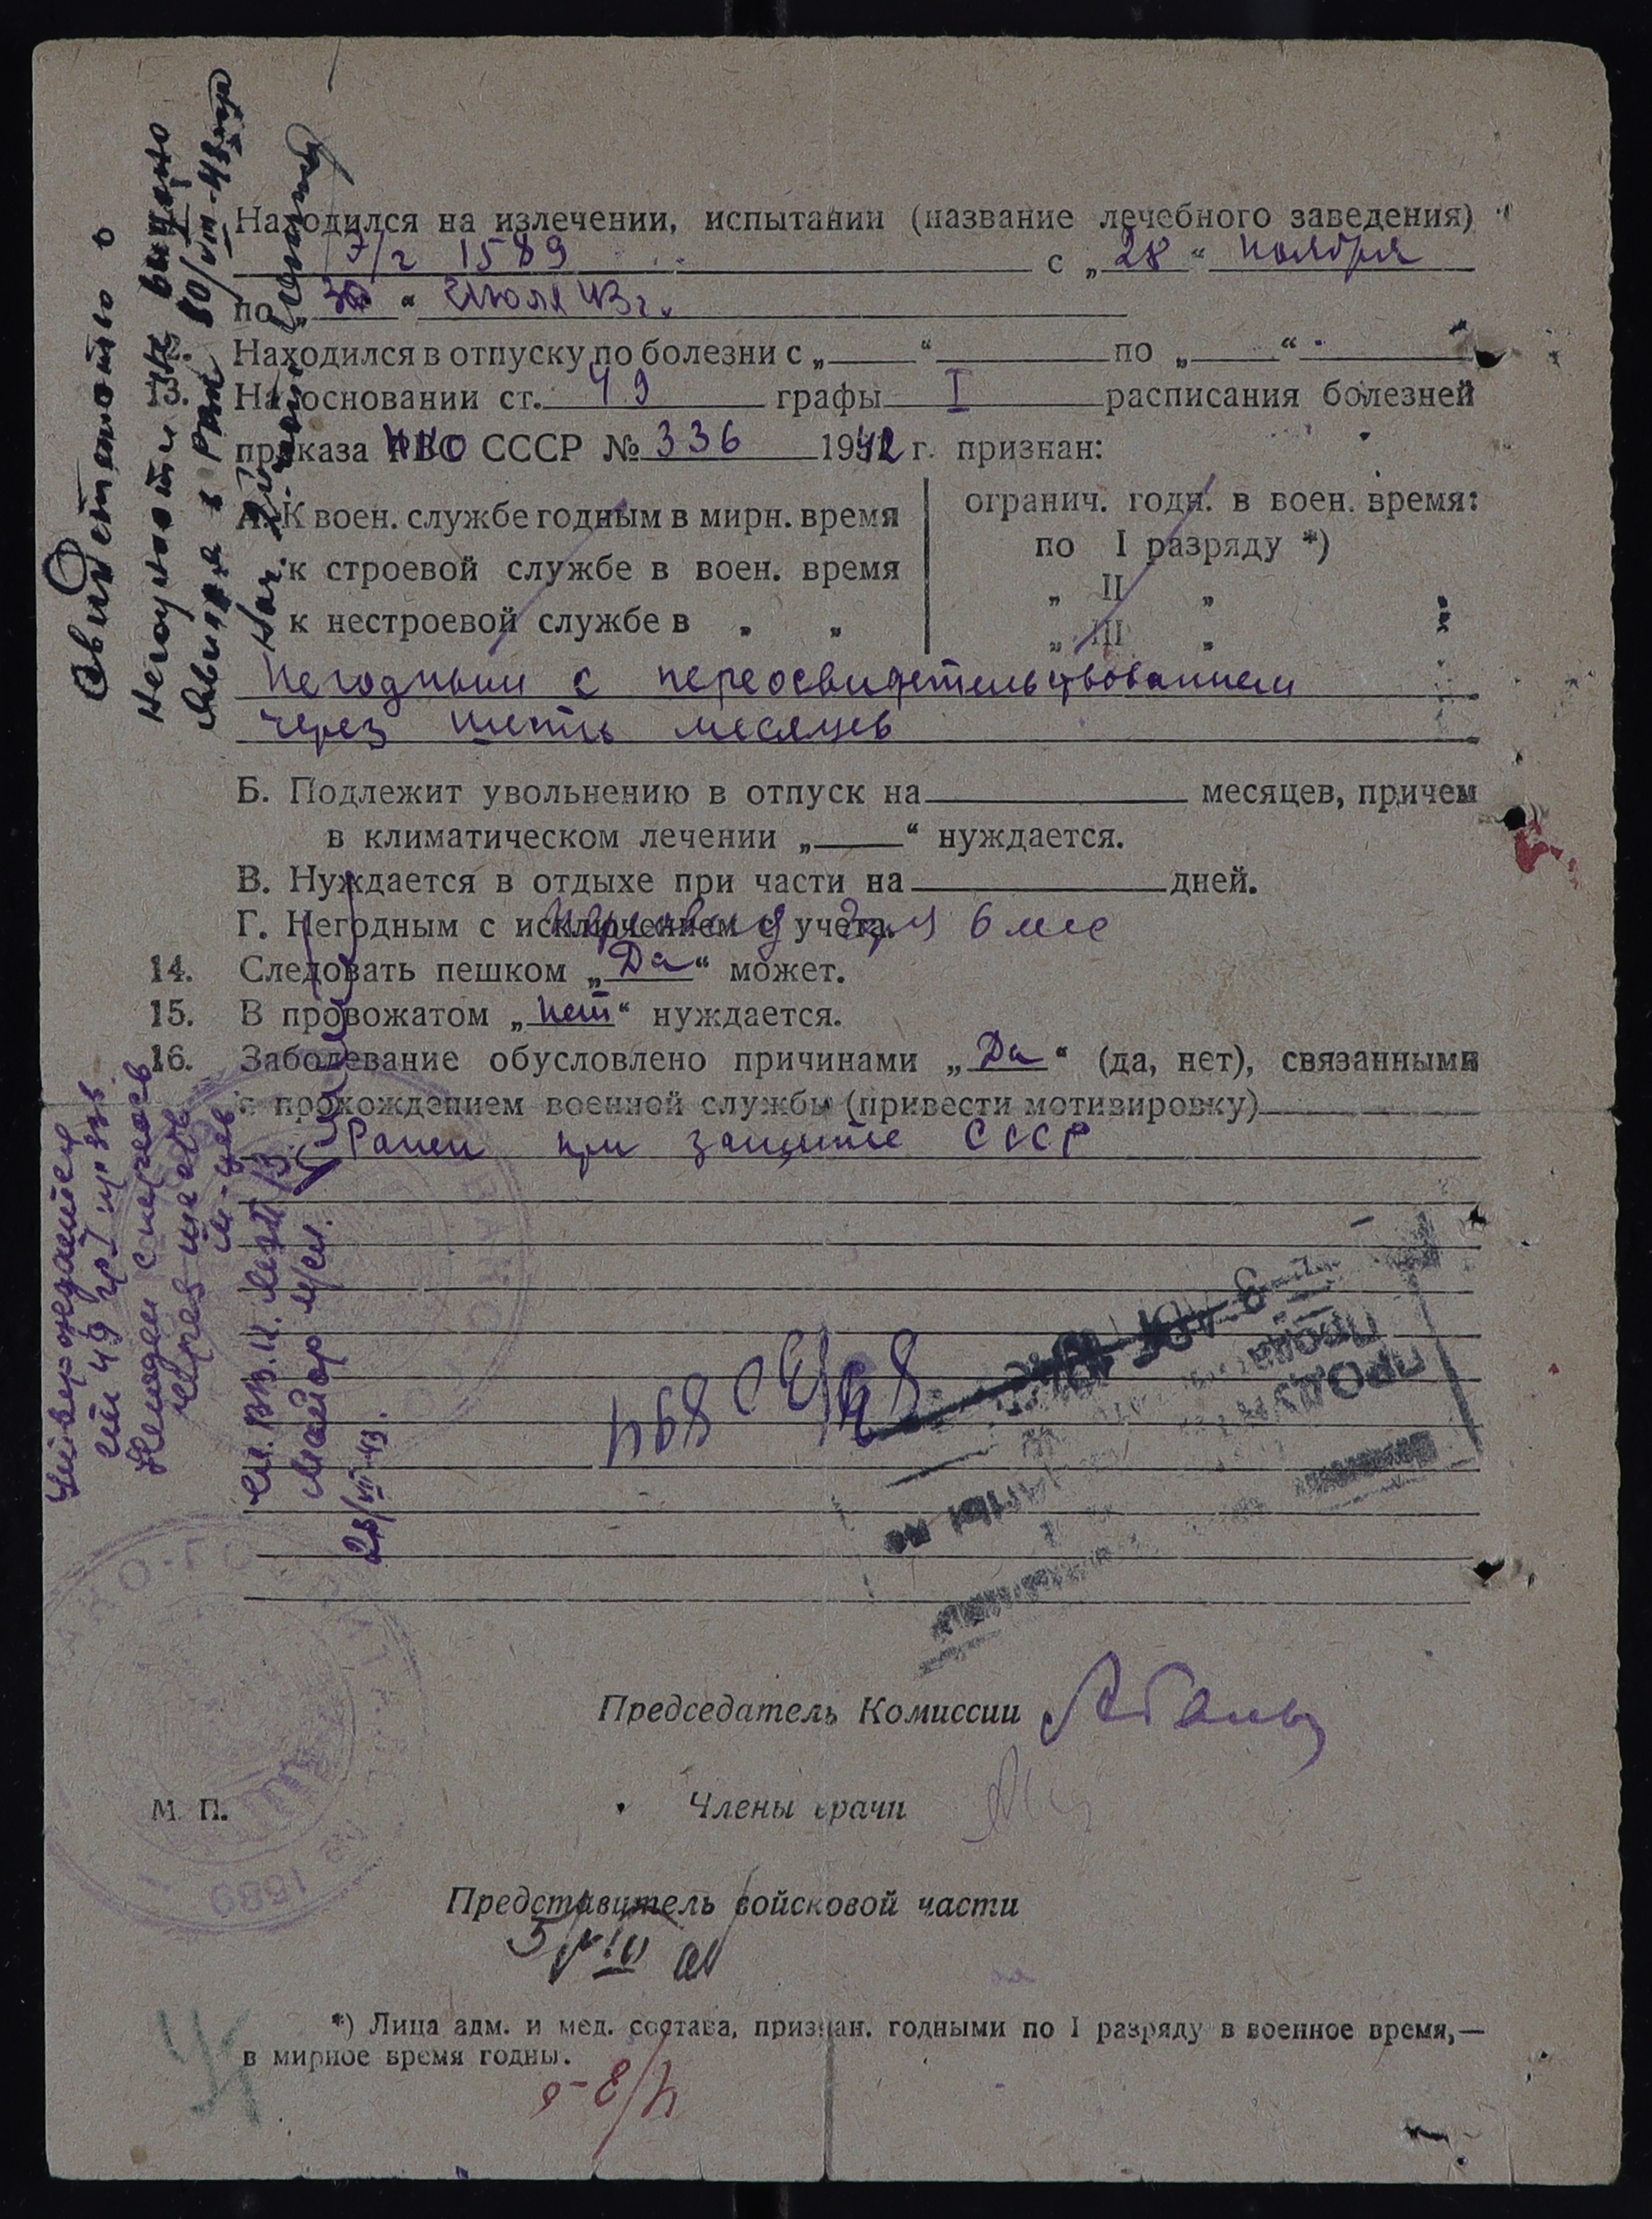 Находился на излечении, испытании (название лечебного заведения)
Э/г 1589 с „28“ ноября
по „30“ Июля 43 г.
Находился в отпуску по болезни с „ “ по „ “
13. На основании ст. 49 графы I расписания болезней
приказа НКО СССР № 336 1942 г. признан:
А. К воен. службе годным в мирн. время
к строевой службе в воен. время
к нестроевой службе в „ „
огранич. годн. в воен. время:
по I разряду *)
„ II „
„ III „
Негодным с переосвидетельствованием
через шесть месяцев
Б. Подлежит увольнению в отпуск на месяцев, причем
в климатическом лечении „ “ нуждается.
В. Нуждается в отдыхе при части на дней.
Г. Негодным с исключением с учета.
6 мес
14. Следовать пешком „Да“ может.
15. В провожатом „нет“ нуждается.
16. Заболевание обусловлено причинами „Да“ (да, нет), связанными
с прохождением военной службы (привести мотивировку)
Ранен при защите СССР
Свидетельство о
негодности выдано
10/VIII-43 года
Нач.
Утверждается
ст 49 гр I пр 336.
Негоден с переосв
через шесть
м-цев
Майор м/сл.
28/VII-43.
Председатель Комиссии
Члены врачи
М. П.
1589
Представитель войсковой части
5/VIII
*) Лица адм. и мед. состава, признан. годными по I разряду в военное время,—
в мирное время годны.